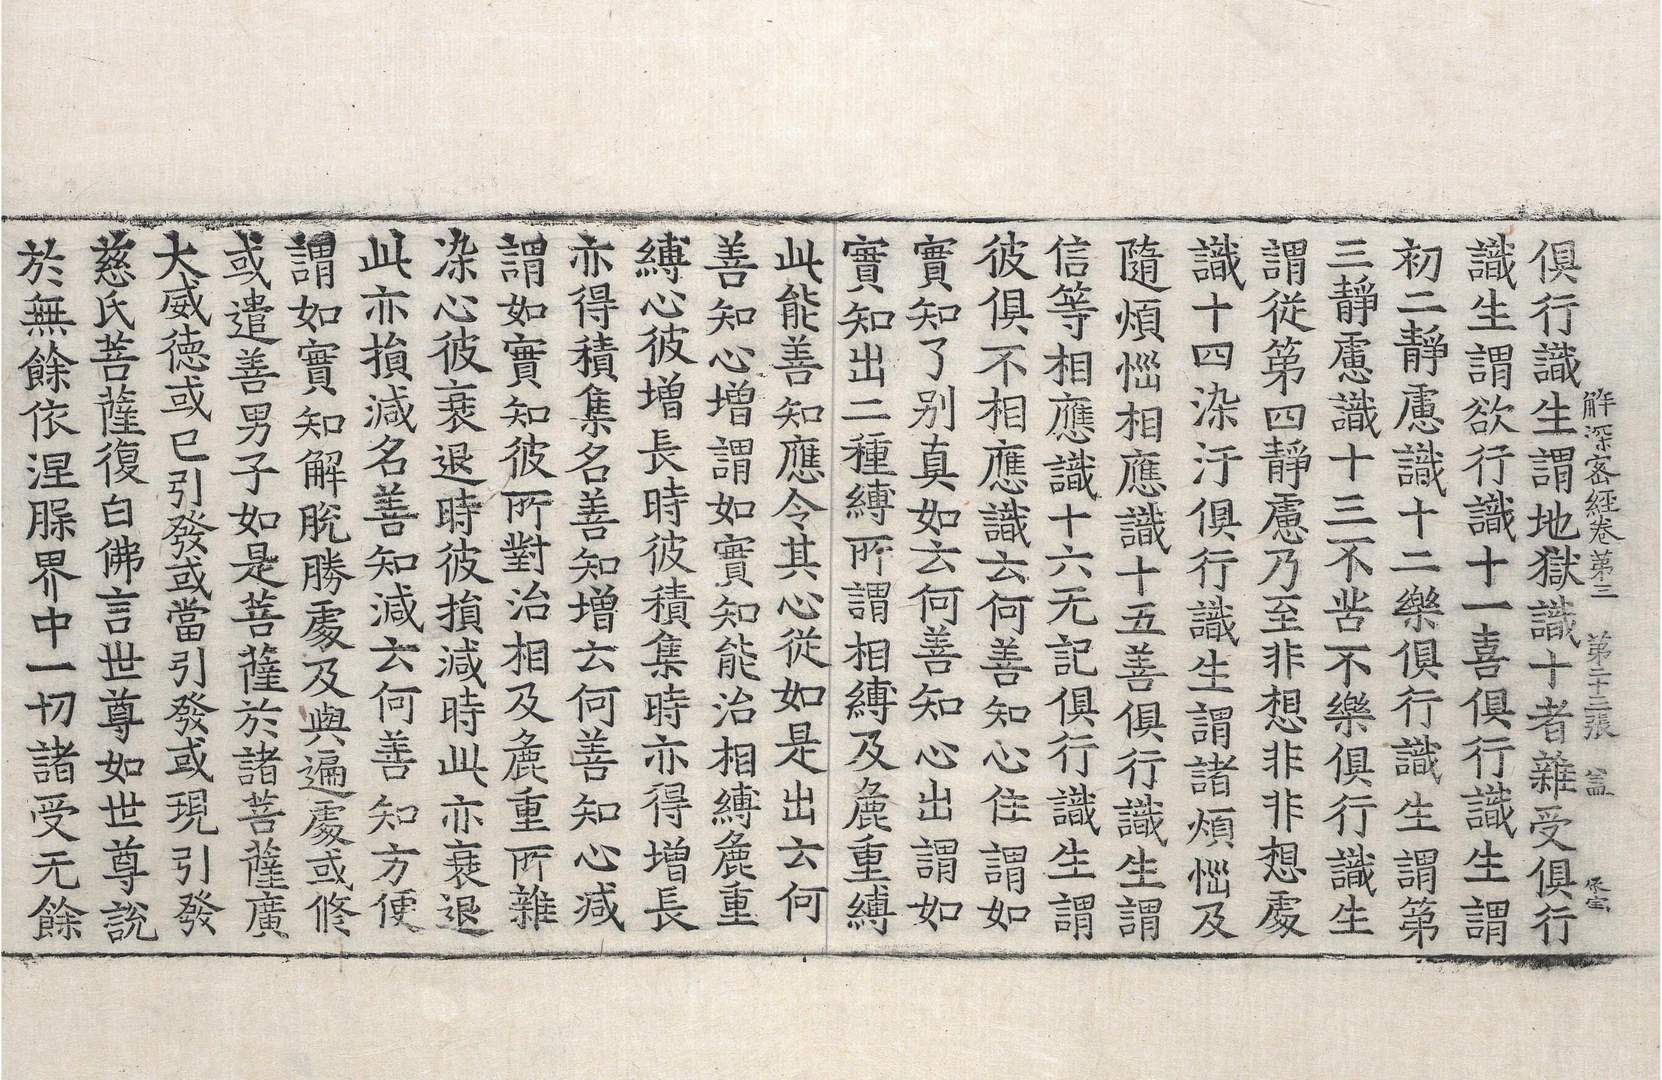 解深密經卷第三 第二十三張 盖
俱行識生謂地獄識十者雜受俱行
識生謂欲行識十一喜俱行識生謂
初二靜慮識十二樂俱行識生謂第
三靜慮識十三不苦不樂俱行識生
謂從第四靜慮乃至非想非非想處
識十四染汙俱行識生謂諸煩惱及
隨煩惱相應識十五善俱行識生謂
信等相應識十六无記俱行識生謂
彼俱不相應識云何善知心住謂如
實知了別真如云何善知心出謂如
實知出二種縛所謂相縛及麁重縛
此能善知應令其心從如是出云何
善知心增謂如實知能治相縛麁重
縛心彼增長時彼積集時亦得增長
亦得積集名善知增云何善知心減
謂如實知彼所對治相及麁重所雜
染心彼衰退時彼損減時此亦衰退
此亦損減名善知減云何善知方便
謂如實知解脫勝處及與遍處或修
或遣善男子如是菩薩於諸菩薩廣
大威德或已引發或當引發或現引發
慈氏菩薩復白佛言世尊如世尊說
於無餘依涅槃界中一切諸受无餘